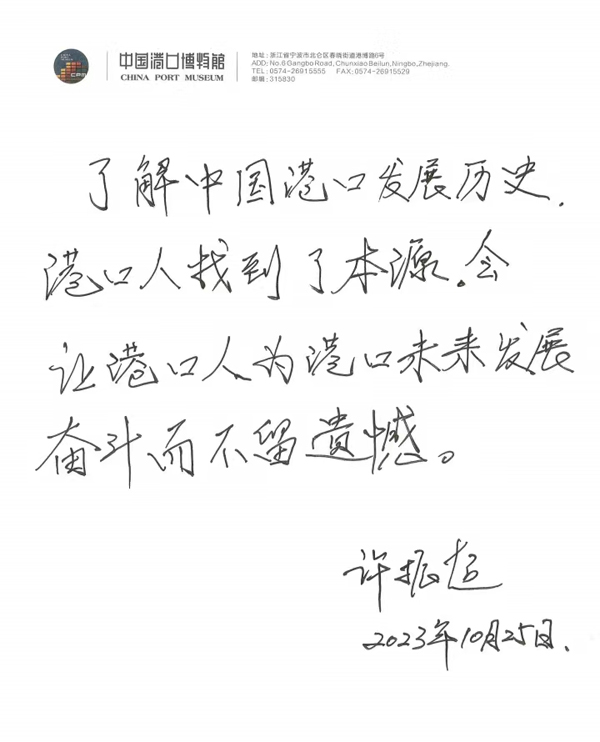 中国港口博物館
CHINA PORT MUSEUM
地址:浙江省宁波市北仑区春晓街道港博路6号
ADD: No.6 Gangbo Road, Chunxiao Beilun, Ningbo, Zhejiang.
TEL: 0574-26915555 FAX: 0574-26915529
邮编: 315830
了解中国港口发展历史.
港口人找到了本源.会
让港口人为港口未来发展
奋斗而不留遗憾。
许振超
2023年10月25日.